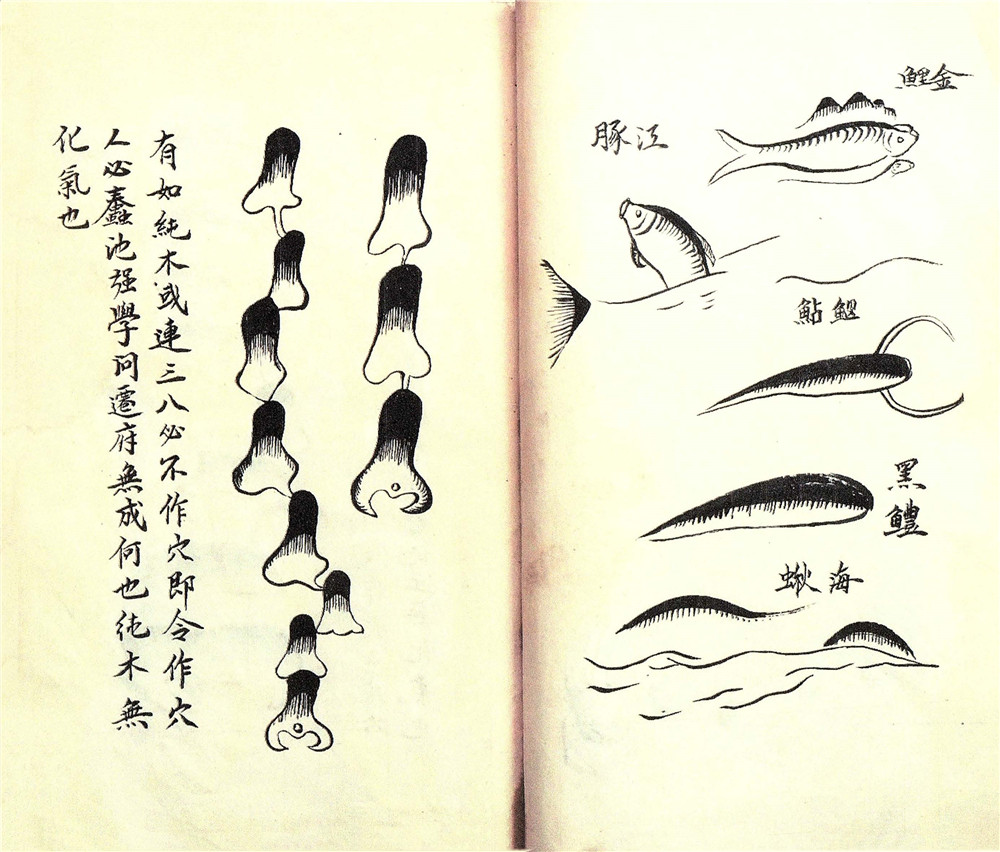 金鯉
江豚
鰋鮎
黑鱧
海
有如純木或連三八必不作穴即令作穴
人必蠢池强學问遷府無成何也純木無
化氣也